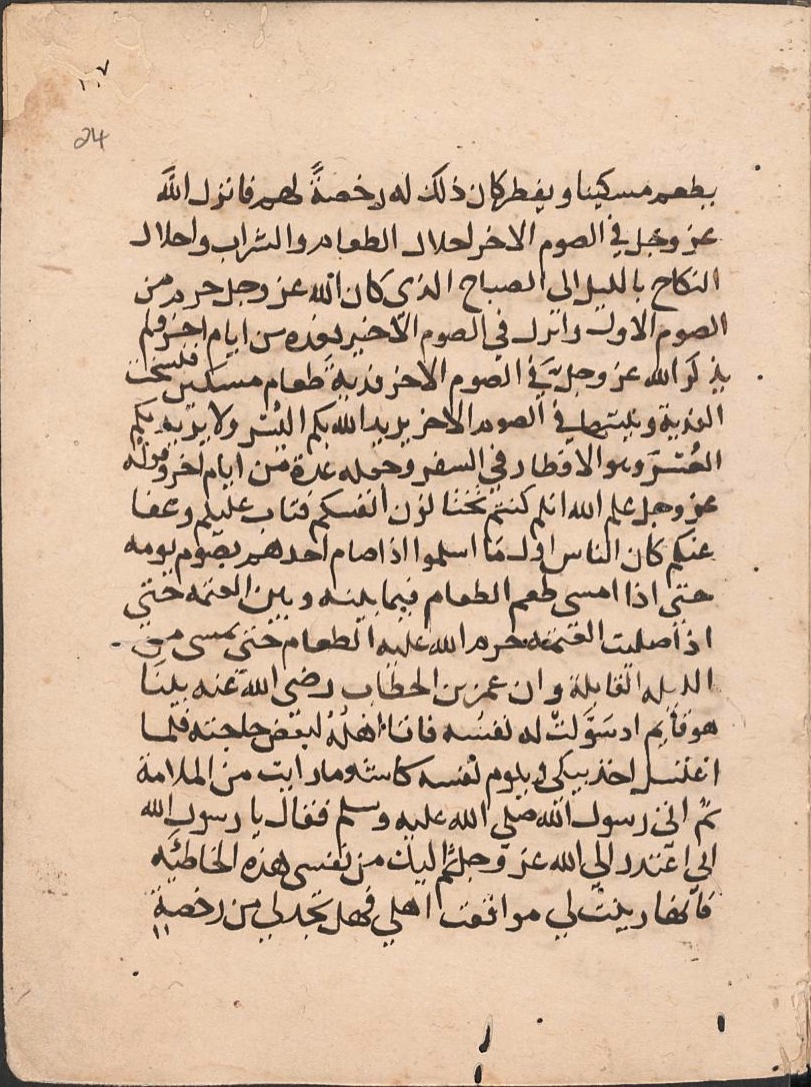 ١٠٧
24
يطعم مسكينا ويفطر كان ذلك له رخصةً لهم فانزل اللّٰه
عز وجل في الصوم الاخر احلال الطعام والشراب واحلال
النكاح بالليل الى الصباح الذي كان الله عز وجل حرم من
الصوم الاول وانزل في الصوم الاخير فعده من ايام اخر ولم
يذكر الله عز وجل في الصوم الاخر فدية طعام مسكين فنسخت
الفدية وثبتها في الصوم الاخر يريد الله بكم اليُسر ولا يريد بكم
العُسْرَ وهو الافطار في السفر وجعله عدة من ايام اخر وقوله
عز وجل علم الله انكم كنتم تختانون انفسكم فتاب عليكم وعفا
عنكم كان الناس اول ما اسلموا اذا صام احدهم يصوم يومه
حتى اذا امسى طعم الطعام فيما بينه وبين العتمه حتى
اذا صليت العتمه حرم الله عليه الطعام حتى يمسى من
الليله القابلة وان عمر بن الخطاب رضى الله عنه بينا
هو قائم اذ سَوَّلتْ له نفسُه فاتا اهلهُ لبعض حاجته فلما
اغتسل اخذ يبكى ويلوم نفسه كاشد ما رايت من الملامة
ثم اتى رسول الله صلى الله عليه وسلم فقال يا رسول الله
انى اعتذر الي الله عز وجل ثم اليك من نفسى هذه الخاطئه
فانها زينتْ لي مواقعت اهلي فهل تجد لي من رخصةٍ